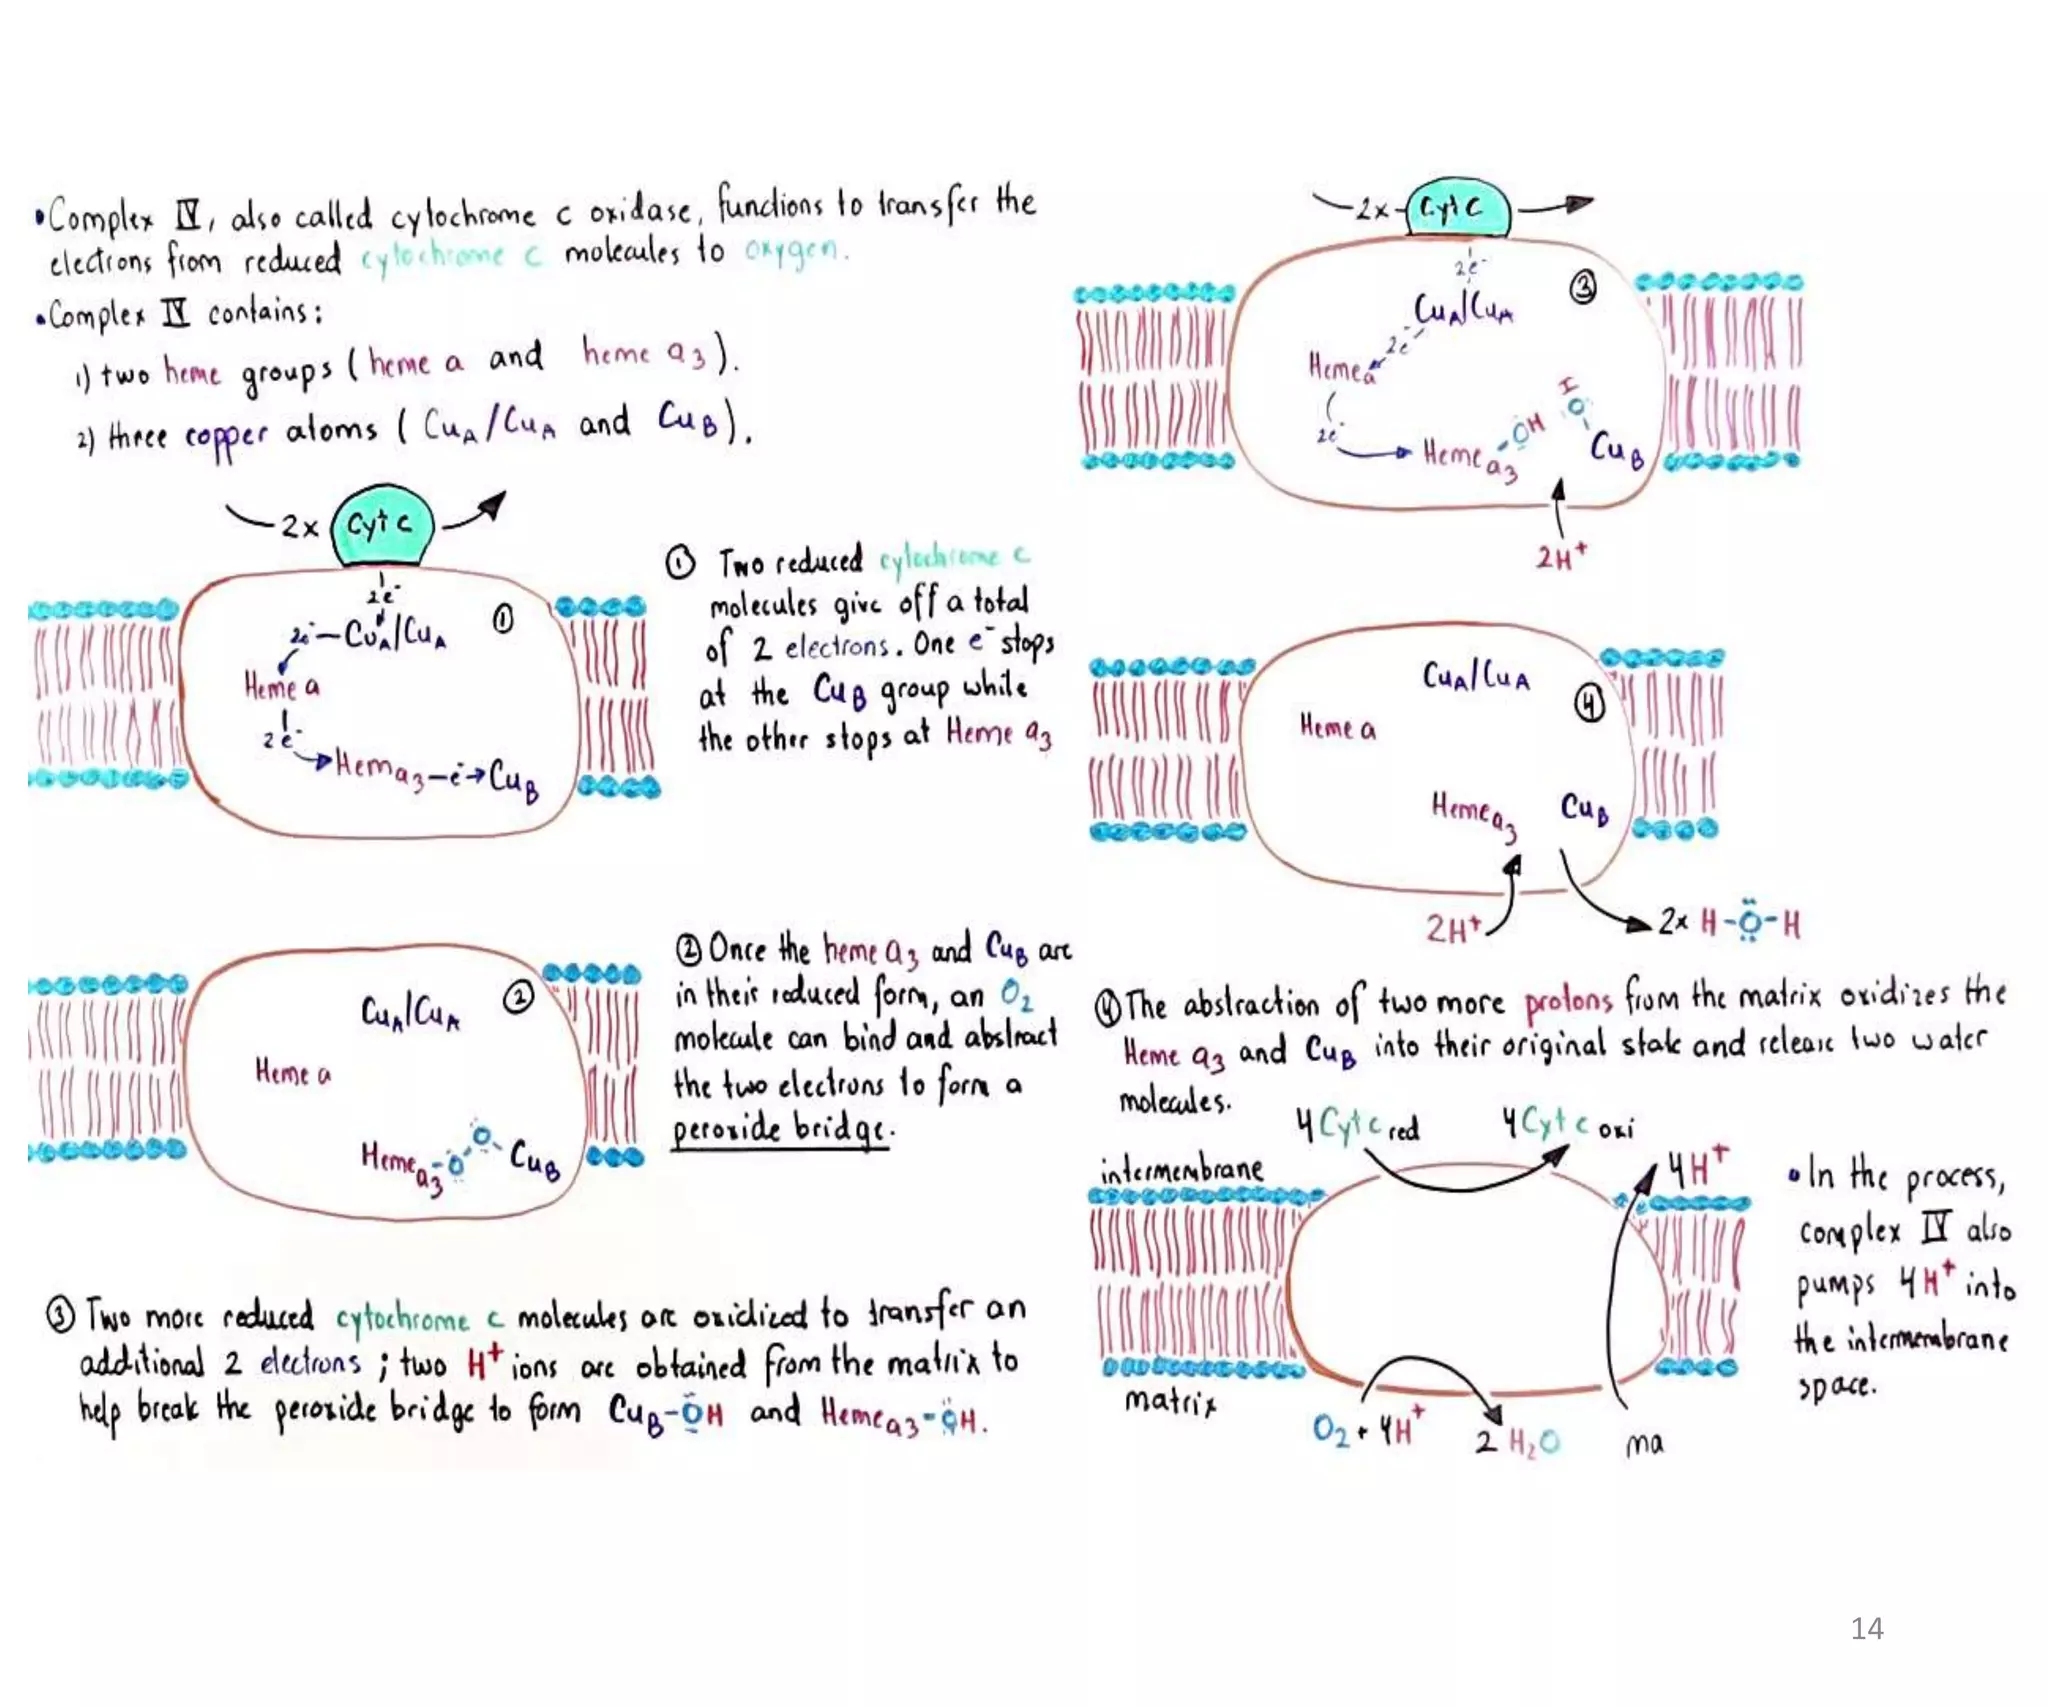 •Complex IV, also called cytochrome c oxidase, functions to transfer the
electrons from reduced cytochrome c molecules to oxygen.
•Complex IV contains:
1) two heme groups (heme a and heme a3).
2) three copper atoms (CuA/CuA and CuB).
2x Cyt c
2e-
2e- CuA/CuA ①
Heme a
2e-
Hema3 -e-→ CuB
① Two reduced cytochrome c
molecules give off a total
of 2 electrons. One e- stops
at the CuB group while
the other stops at Heme a3
CuA/CuA ②
Heme a
Heme a3-O-O-CuB
② Once the heme a3 and CuB are
in their reduced form, an O2
molecule can bind and abstract
the two electrons to form a
peroxide bridge.
③ Two more reduced cytochrome c molecules are oxidized to transfer an
additional 2 electrons; two H+ ions are obtained from the matrix to
help break the peroxide bridge to form CuB-OH and Heme a3-OH.
2x Cyt c
2e-
CuA/CuA ③
2e-
Heme a
2e-
Heme a3 -OH
H
O
CuB
2H+
CuA/CuA ④
Heme a
Heme a3 CuB
2H+ 2x H-O-H
④ The abstraction of two more protons from the matrix oxidizes the
Heme a3 and CuB into their original state and release two water
molecules.
4 Cyt c red 4 Cyt c oxi
intermembrane 4H+
matrix
O2 + 4H+ 2 H2O ma
• In the process,
complex IV also
pumps 4H+ into
the intermembrane
space.
14